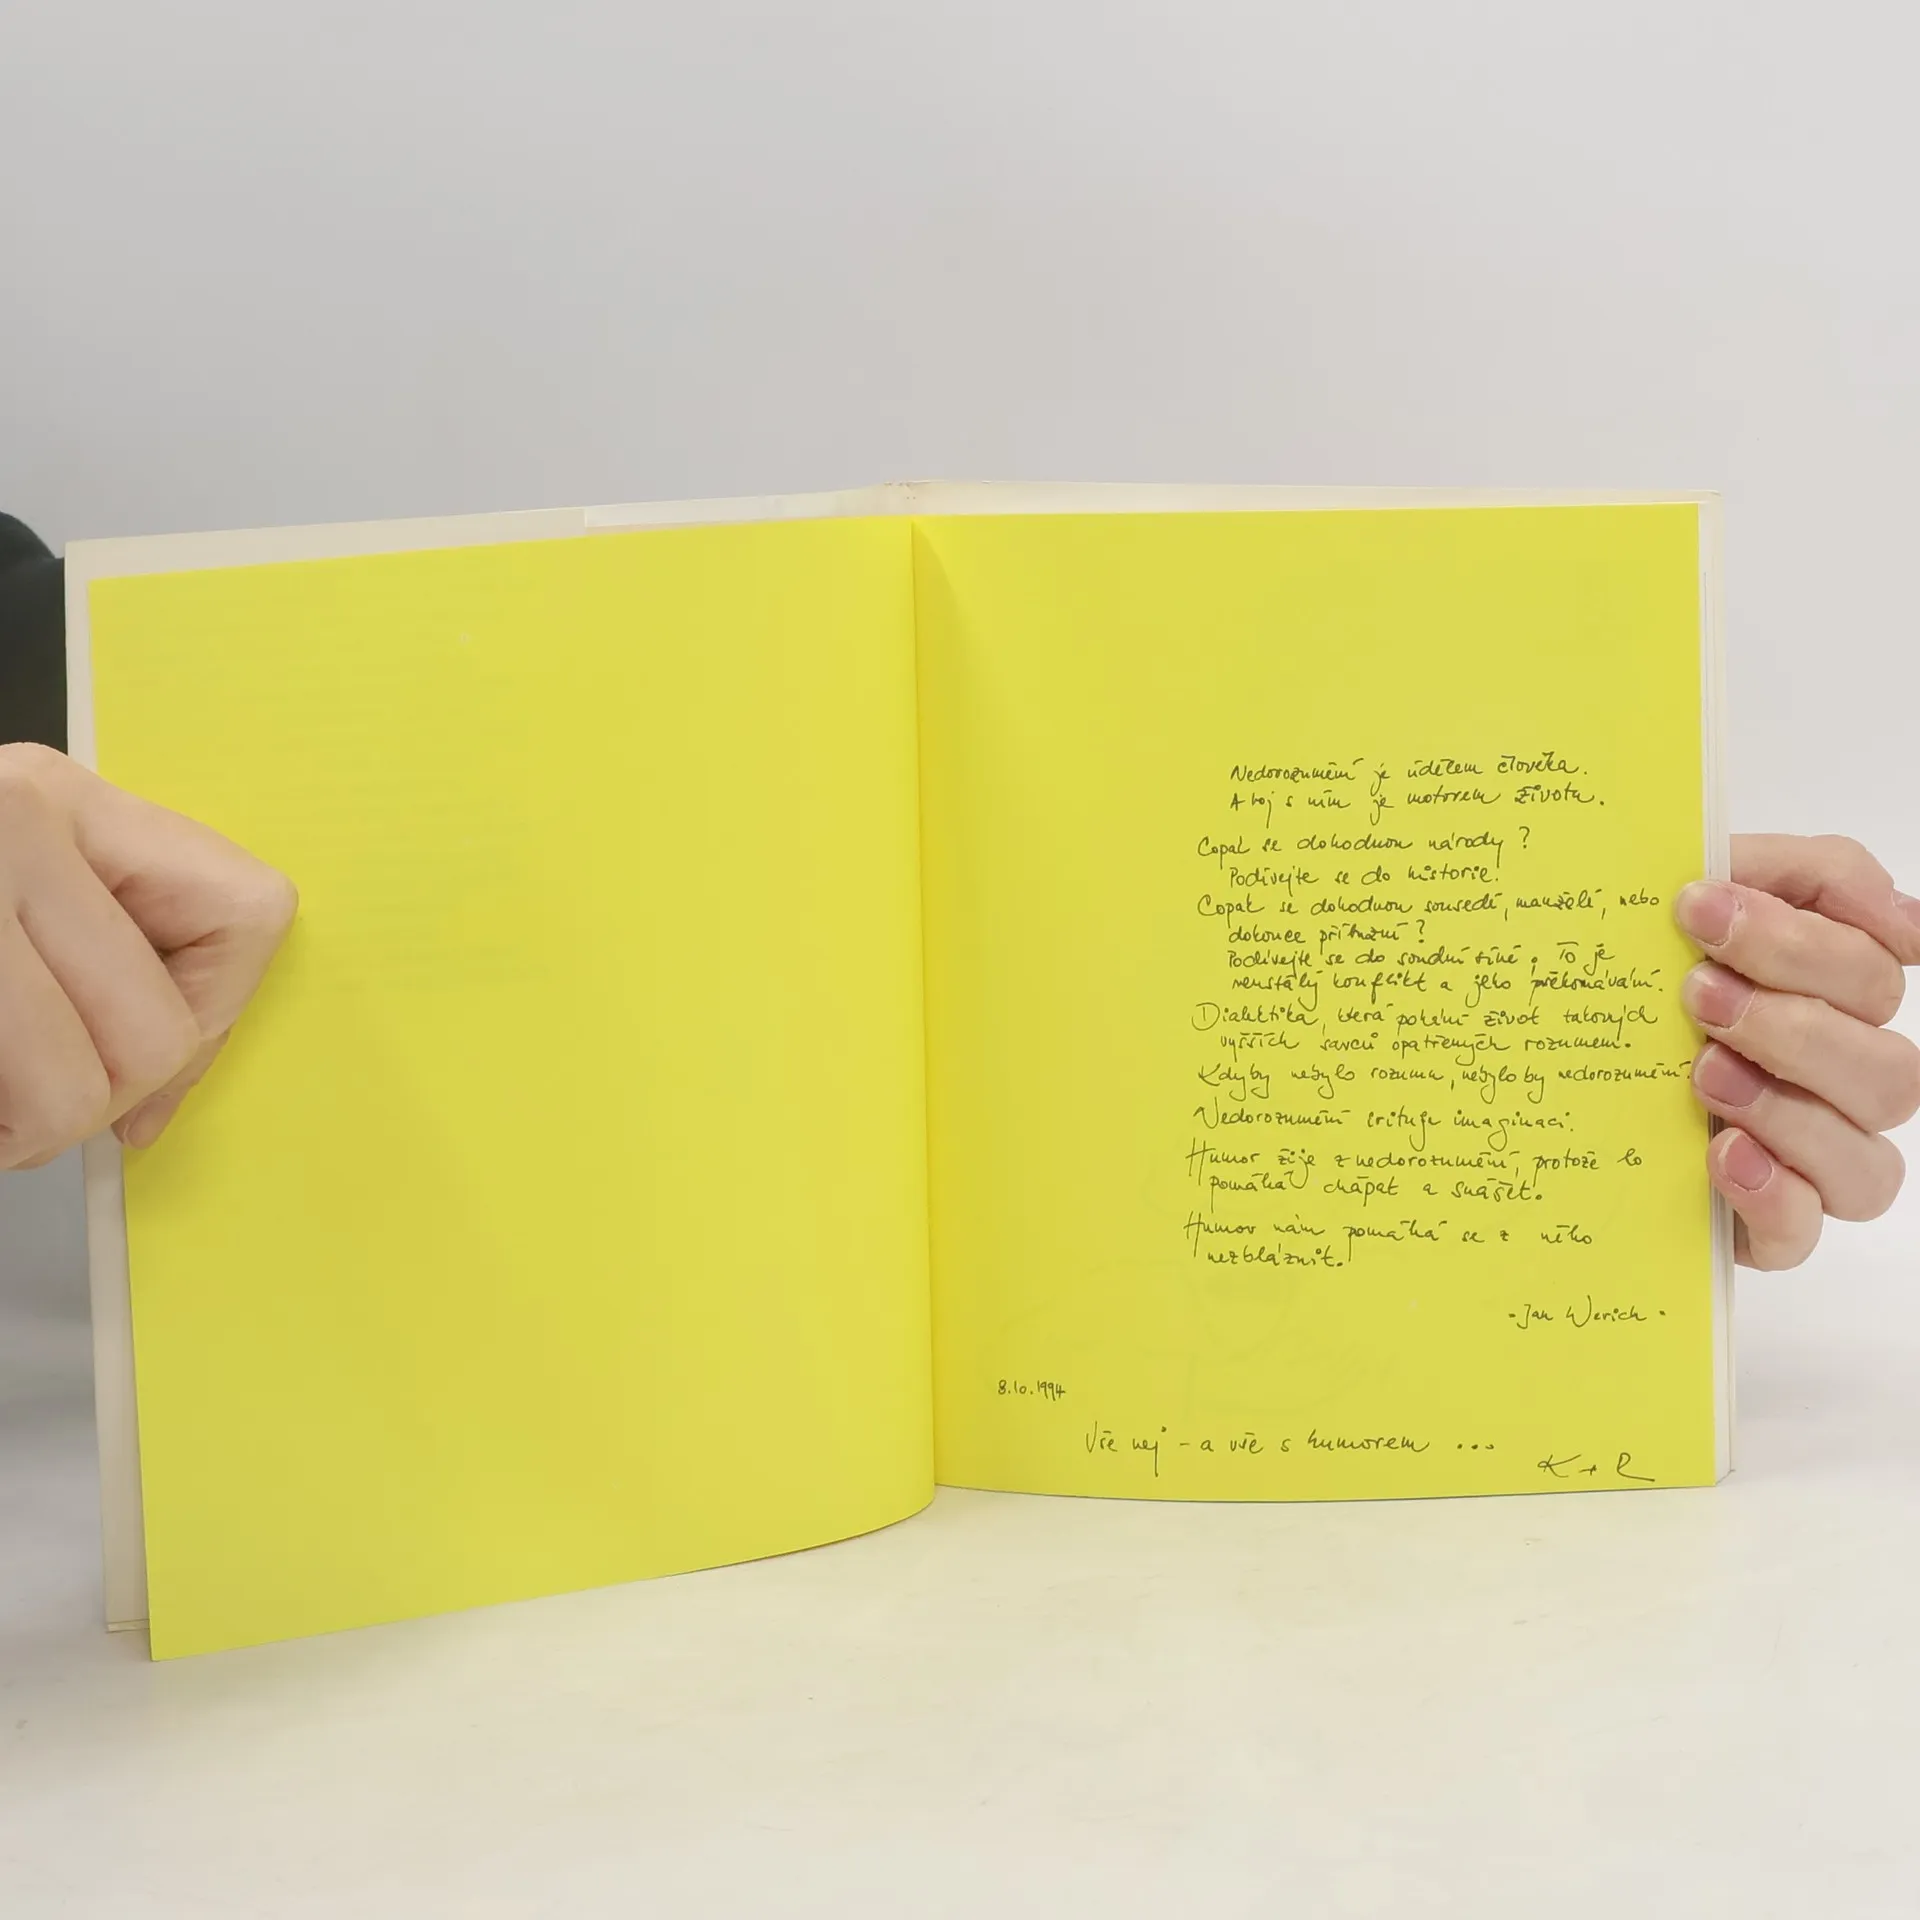 Nedorozumění je údělem člověka.
A boj s ním je motorem života.
Copak se dohodnou národy?
Podívejte se do historie!
Copak se dohodnou sousedí, manželé, nebo
dokonce příbuzní?
Podívejte se do soudní síně. To je
neustálý konflikt a jeho překonávání.
Dialektika, která pohání život takových
vyšších savců opatřených rozumem.
Kdyby nebylo rozumu, nebylo by nedorozumění.
Nedorozumění irituje imaginaci.
Humor žije z nedorozumění, protože to
pomáhá chápat a snášet.
Humor nám pomáhá se z něho
nezbláznit.
- Jan Werich -
8.10.1994
Vše nej - a vše s humorem ...
K + R